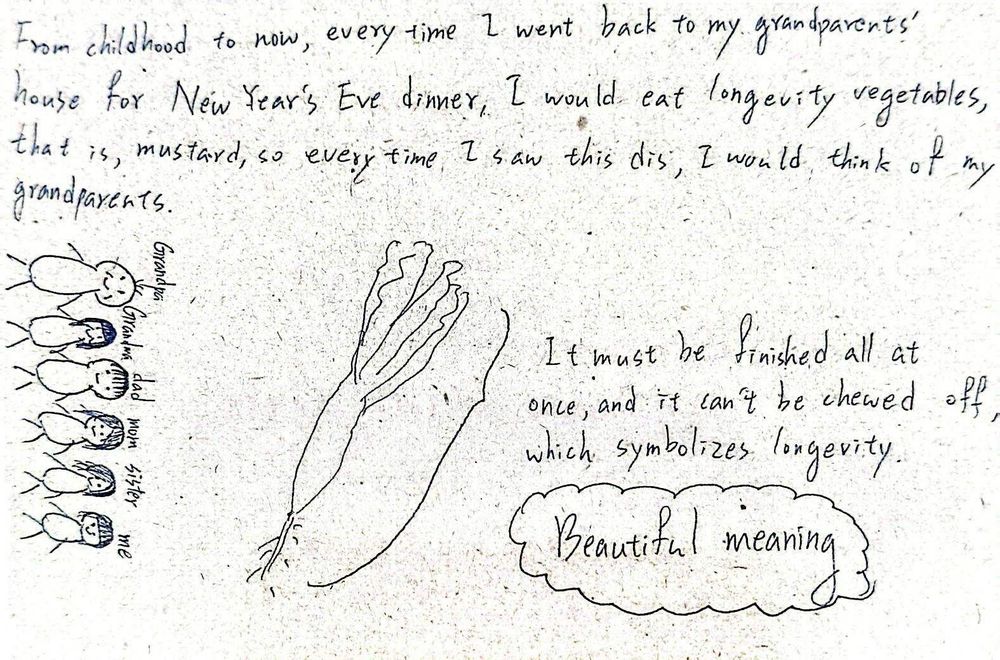 From childhood to now, every time I went back to my grandparents'
house for New Year's Eve dinner, I would eat longevity vegetables,
that is, mustard, so every time I saw this dis, I would think of my
grandparents.
Grandpa
Grandma
dad
mom
sister
me
It must be finished all at
once, and it can't be chewed off,
which symbolizes longevity.
Beautiful meaning